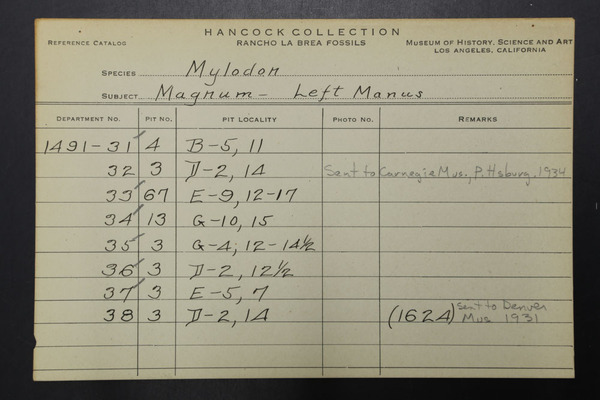 HANCOCK COLLECTION
REFERENCE CATALOG RANCHO LA BREA FOSSILS MUSEUM OF HISTORY, SCIENCE AND ART
LOS ANGELES, CALIFORNIA
SPECIES Mylodon
SUBJECT Magnum - Left Manus
DEPARTMENT NO. PIT NO. PIT LOCALITY PHOTO NO. REMARKS
1491-31 4 B-5, 11
32 3 D-2, 14 Sent to Carnegie Mus., Pittsburg, 1934
33 67 E-9, 12-17
34 13 G-10, 15
35 3 G-4, 12-14½
36 3 D-2, 12½
37 3 E-5, 7
38 3 D-2, 14 (1624) sent to Denver
Mus 1931